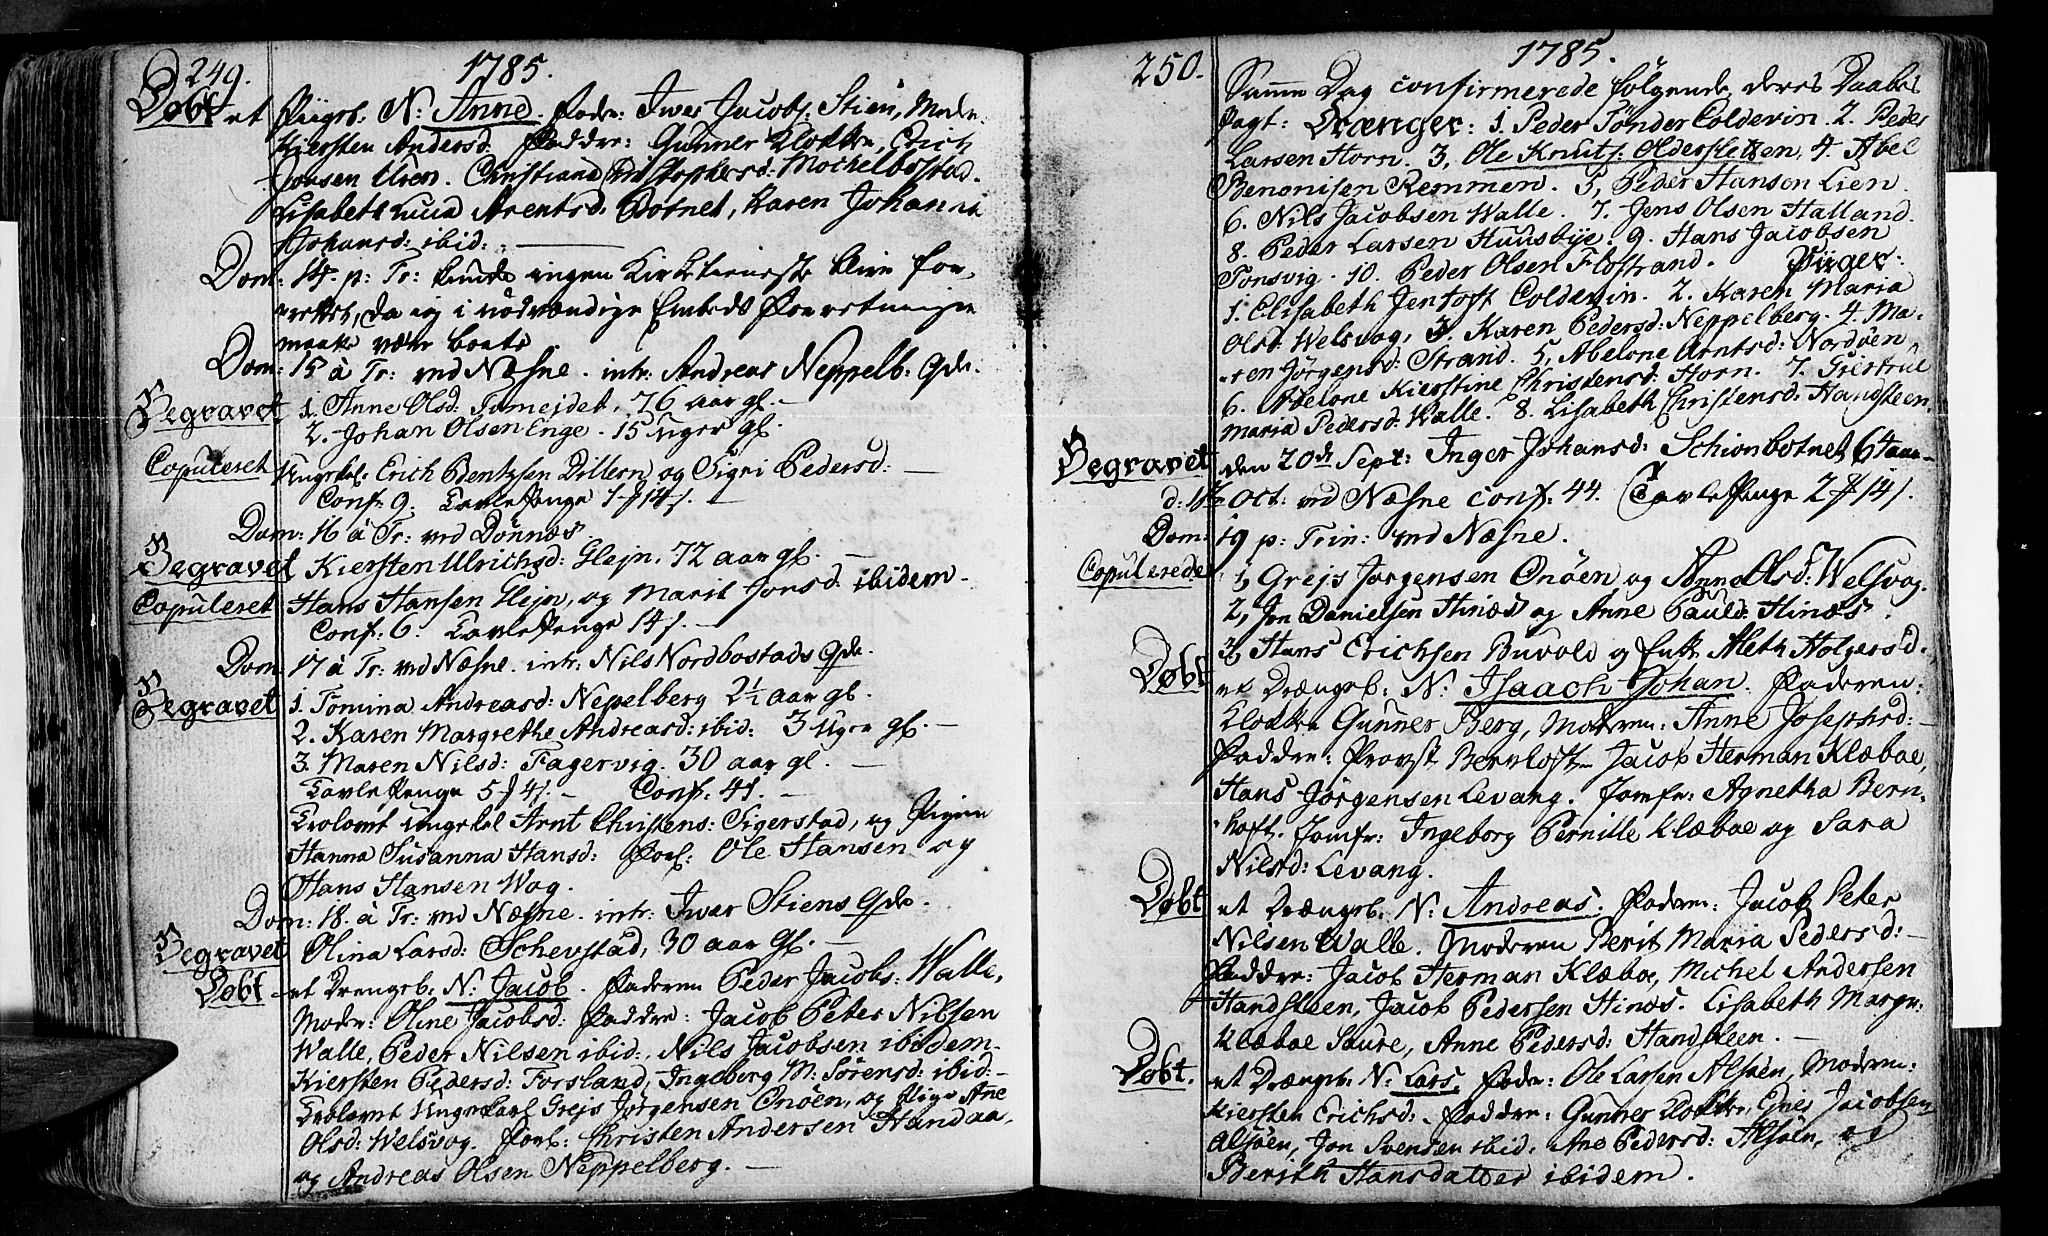 249. 1785.
Døbt et Piigeb. N: Anne. Fader: Iwer Jacobs: Stien, Moder.
Kiersten Andersd: Faddre: Gunner Klokker, Erich
Jonsen Uren. Christiana Christophersd: Mochelbostad.
Lisabeth Lucia Arentsd: Botnet, Karen Johanna
Johansd: ibid:.
Dom: 14. p: Tr: kunde ingen Kirketieneste blive for-
rettet, da jeg i nødvændige Embeds Forretninger
maatte være borte
Dom: 15 à Tr: ved Næsne. intr: Andreas Neppelb: Qde.
Begravet 1. Anne Olsd: Tomejdet, 76 aar gl. –
2. Johan Olsen Enge. 15 Uger gl.
Copuleret Ungekel: Erich Bentzsen Dillern og Sigri Pedersd: –
Conf: 9. Tavle Penge
Dom: 16 à Tr: ved Dønnæs
Begravet Kiersten Ulrichsd: Glejn. 72 aar gl. –
Copuleret Hans Hansen Glejn, og Marit Jonsd: ibidem –
Conf: 6. Tavle Penge 14 /. –
Dom: 17 à Tr: ved Næsne. intr: Nils Nordbostads Qde.
Begravet 1. Tomina Andreasd: Nepelberg 2½ aar gl.
2. Karen Margrethe Andreasd: ibid: 3 Uger gl. –
3. Maren Nilsd: Fagervig. 30 aar gl. –
Tavle Penge 5 4 /. – Conf: 41. –
Trolovet Ungekel Arnt Christens: Sigerstad, og Pigen
Hanna Susanna Hansd: Forl: Ole Hansen og
Hans Hansen Wog.
Dom: 18. à Tr: ved Næsne. intr: Iwer Stiens Qde.
Begravet Olina Larsd: Schevstad, 30 aar gl. –
Døbt et Drengeb: N: Jacob. Faderen Peder Jacobs: Walle,
Moder: Oline Jacobsd: Faddre: Jacob Peter Nilsen
Walle, Peder Nilsen ibid:, Nils Jacobsen ibidem –
Kiersten Pedersd: Forsland, Ingeborg M: Sørensd: ibid: –
Trolovet Ungekarl Grejs Jørgensen Onøen, og Pige Ane
Olsd: Welsvog. Forl: Christen Andersen Handaa,
og Andreas Olsen Neppelberg. –
250. 1785.
Samme Dag confirmerede følgende deres Daabes
Pagt: Drænger: 1. Peder Tønder Coldevin. 2. Peder
Larsen Horn. 3, Ole Knuts: Oldersletten, 4. Abel
Benonisen Remmen. 5, Peder Hansen Lien.
6. Nils Jacobsen Walle. 7. Jens Olsen Halland.
8. Peder Larsen Huusbye. 9. Hans Jacobsen
Tonsvig. 10. Peder Olsen Flostrand. Piiger:
1. Elisabeth Jentoft Coldevin. 2. Karen Maria
Olsd: Welsvog, 3. Karen Pedersd: Neppelberg. 4. Ma-
ren Jørgensd: Strand. 5, Abelone Arntsd: Nordøen
6. Abelone Kierstine Christensd: Horn. 7. Giertrue
Maria Pedersd: Walle. 8. Lisabeth Christensd: Handsteen.
Begravet den 20de Sept: Inger Johansd: Schionbotnet 64 aar –
Oct: ved Næsne conf: 44. Tavle Penge 2 14 /.
Dom: 19 p: Trin: ved Næsne.
Copulerede 1, Grejs Jørgensen Onøen og Anne Olsd: Welsvog.
2, Jon Danielsen Hinæs og Anne Pauld: Hinæs.
3, Hans Erichsen Buvold og Enke Aleth Holgersd.
Døbt et Drængeb: N: Isaach Johan. Faderen:
Klokker Gunner Berg, Moderen: Anne Josephsd: –
Faddre: Provst Bernhoft Jacob Herman Klæboe,
Hans Jørgensen Levang. Jomfr: Agnetha Bern-
hoft. Jomfr: Ingeborg Pernille Klæboe og Sara
Nilsd: Levang.
Døbt et Drængeb. N: Andreas. Faderen: Jacob Peter
Nilsen Walle. Moderen Berit Maria Pedersd: –
Faddre: Jacob Herman Klæboe, Michel Andersen
Handsteen, Jacob Pedersen Hinæs. Lisabeth Margr:
Klæboe Saure, Anne Pedersd: Handsteen. –
Døbt. et Drængeb: N: Lars. Fader: Ole Larsen Alsøen, Moderen:
Kiersten Erichsd: Faddre: Gunner Klokker, Ejnes Jacobsen
Alsøen, Jon Svensen ibid: Ane Pedersd: Alsøen, og
Berith Hansdatter ibidem.